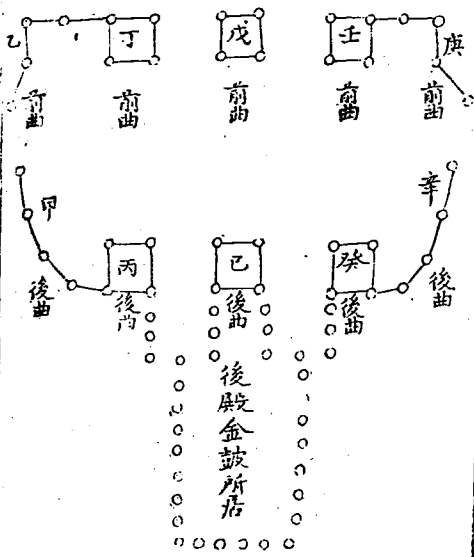 庚
壬
戊
丁
乙
前曲
前曲
前曲
前曲
前曲
辛
癸
己
丙
甲
後曲
後曲
後曲
後丙
後曲
後殿金皷所居